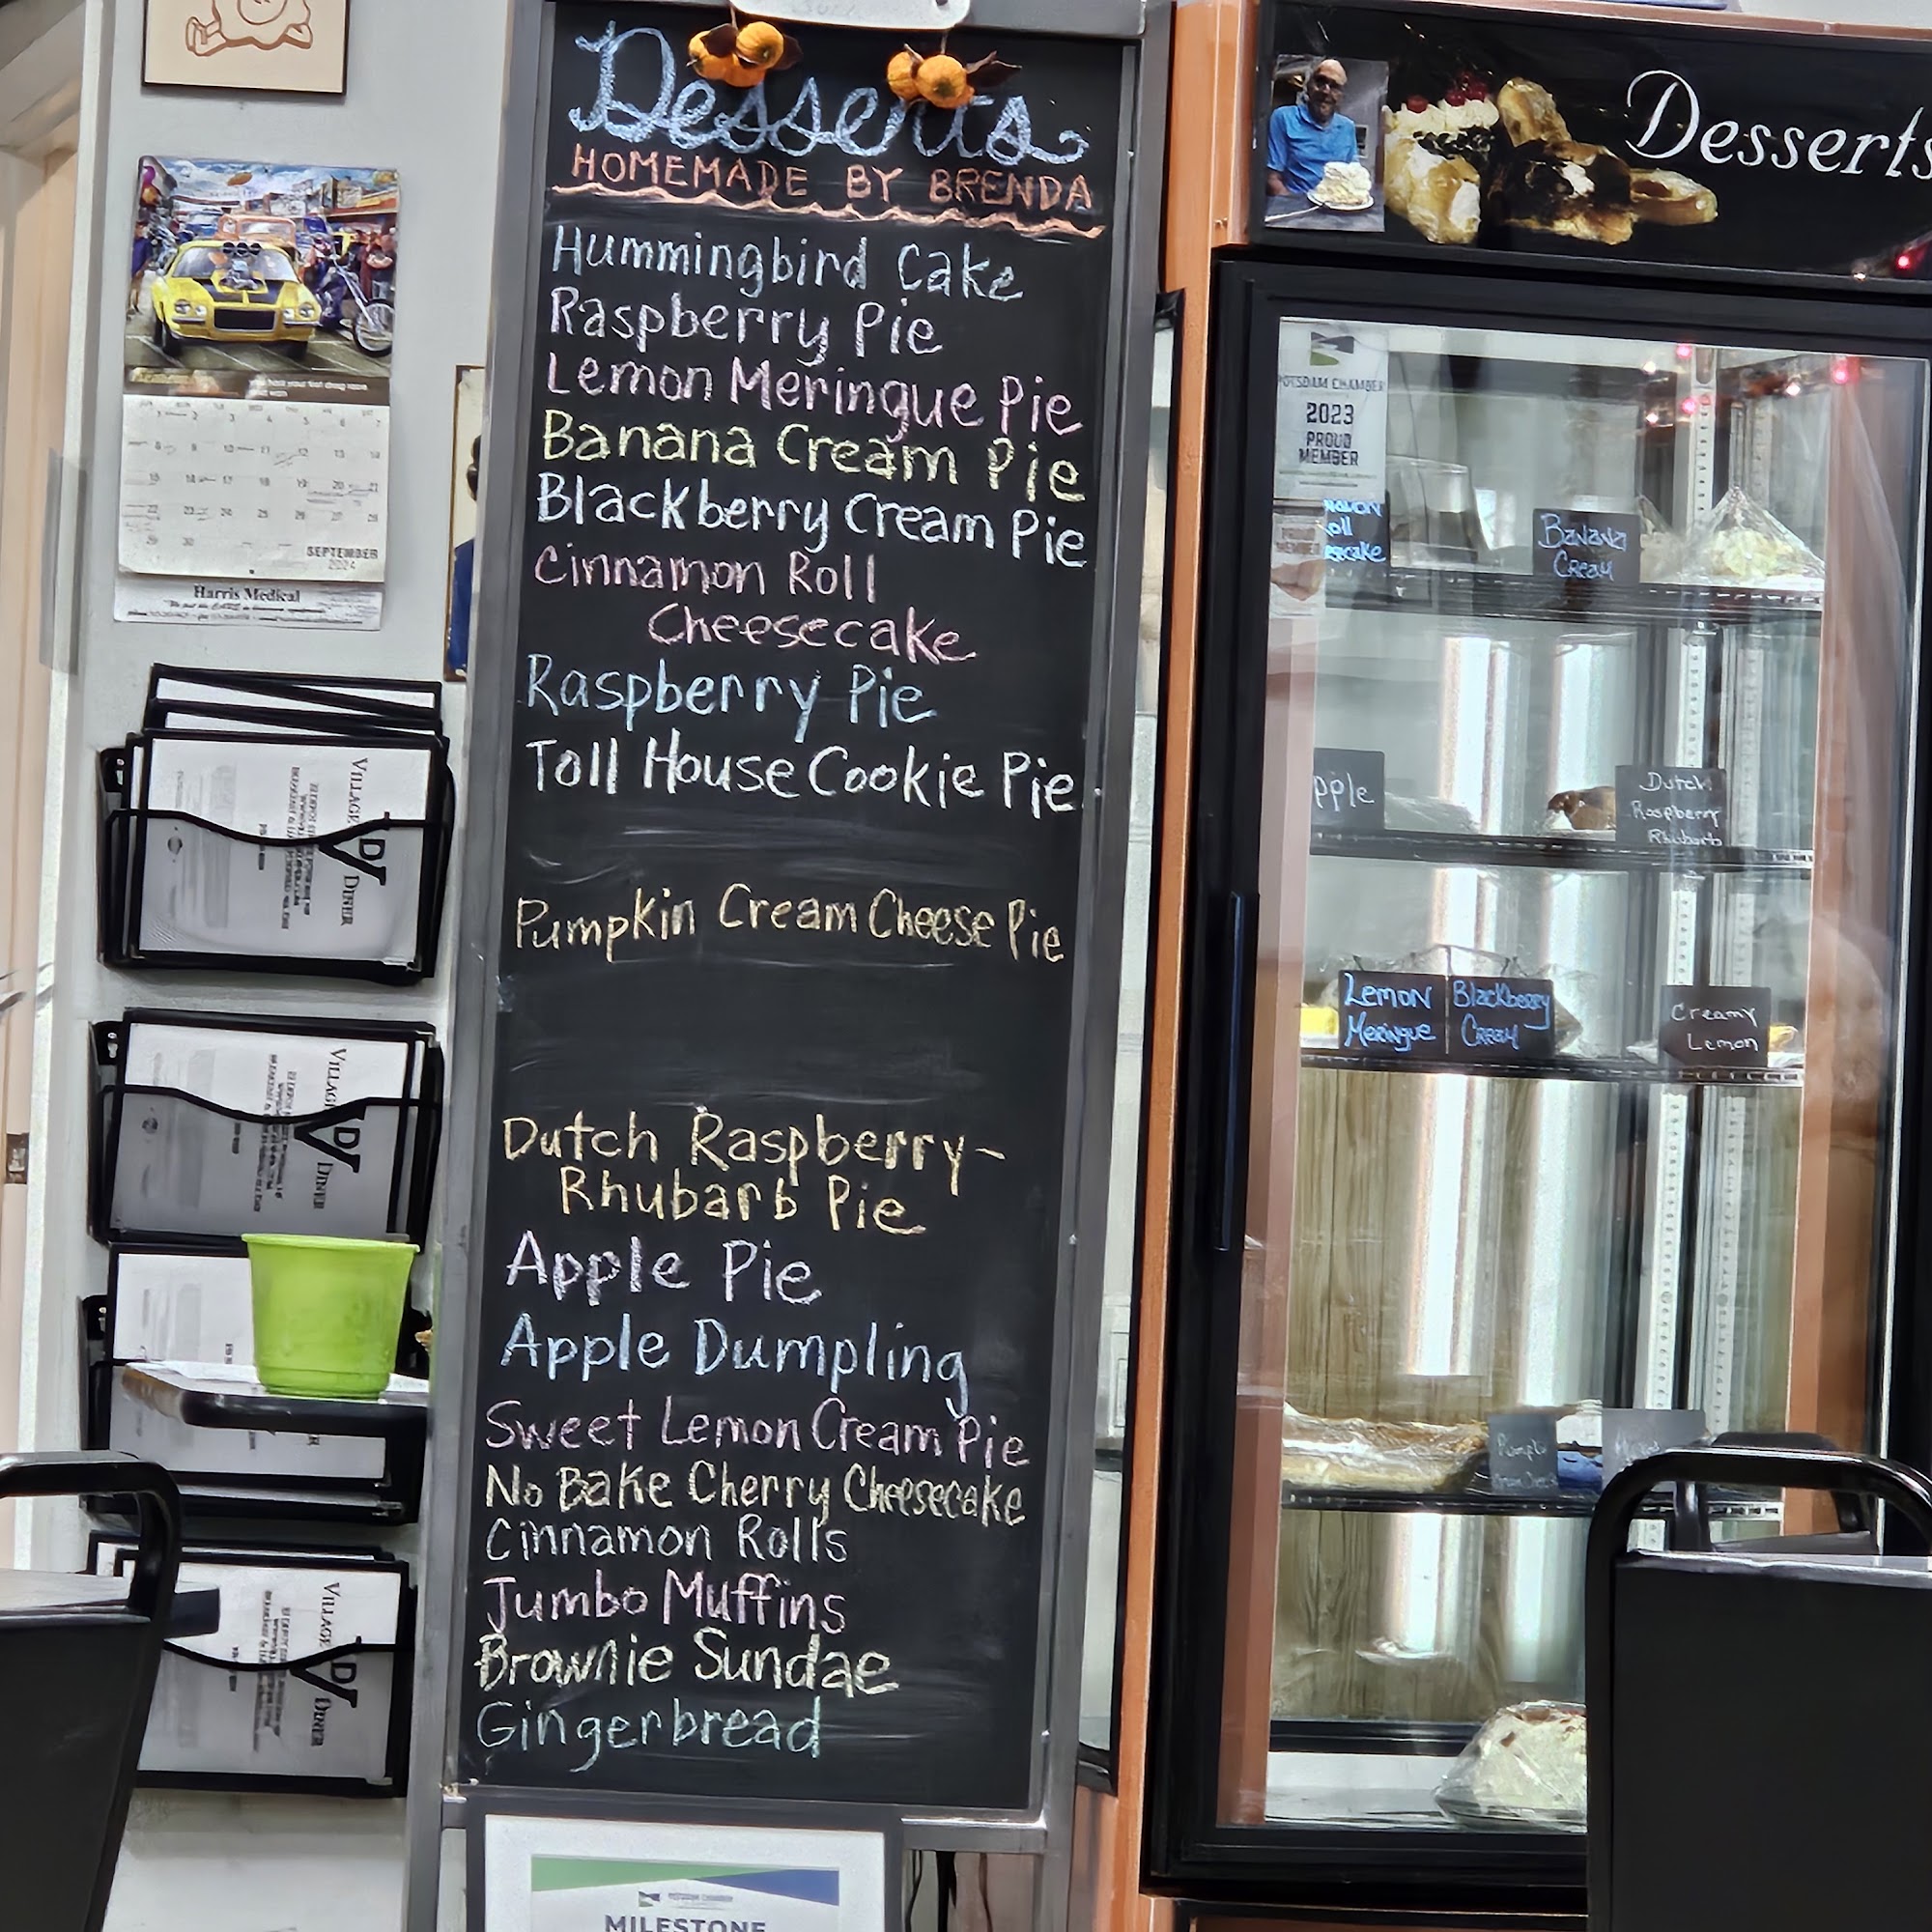 Desserts
HOMEMADE BY BRENDA
Hummingbird Cake
Raspberry Pie
Lemon Meringue Pie
Banana Cream Pie
Blackberry Cream Pie
Cinnamon Roll
Cheesecake
Raspberry Pie
Toll House Cookie Pie
Pumpkin Cream Cheese Pie
Dutch Raspberry-
Rhubarb Pie
Apple Pie
Apple Dumpling
Sweet Lemon Cream Pie
No Bake Cherry Cheesecake
Cinnamon Rolls
Jumbo Muffins
Brownie Sundae
Gingerbread
MILESTONE
SEPTEMBER
2024
Harris Medical
VILLAGE DINER
VILLAGE DINER
VILLAGE DINER
Desserts
POTSDAM CHAMBER
2023
PROUD
MEMBER
Banana
Cream
Dutch
Raspberry
Rhubarb
Lemon
Meringue
Blackberry
Cream
Creamy
Lemon